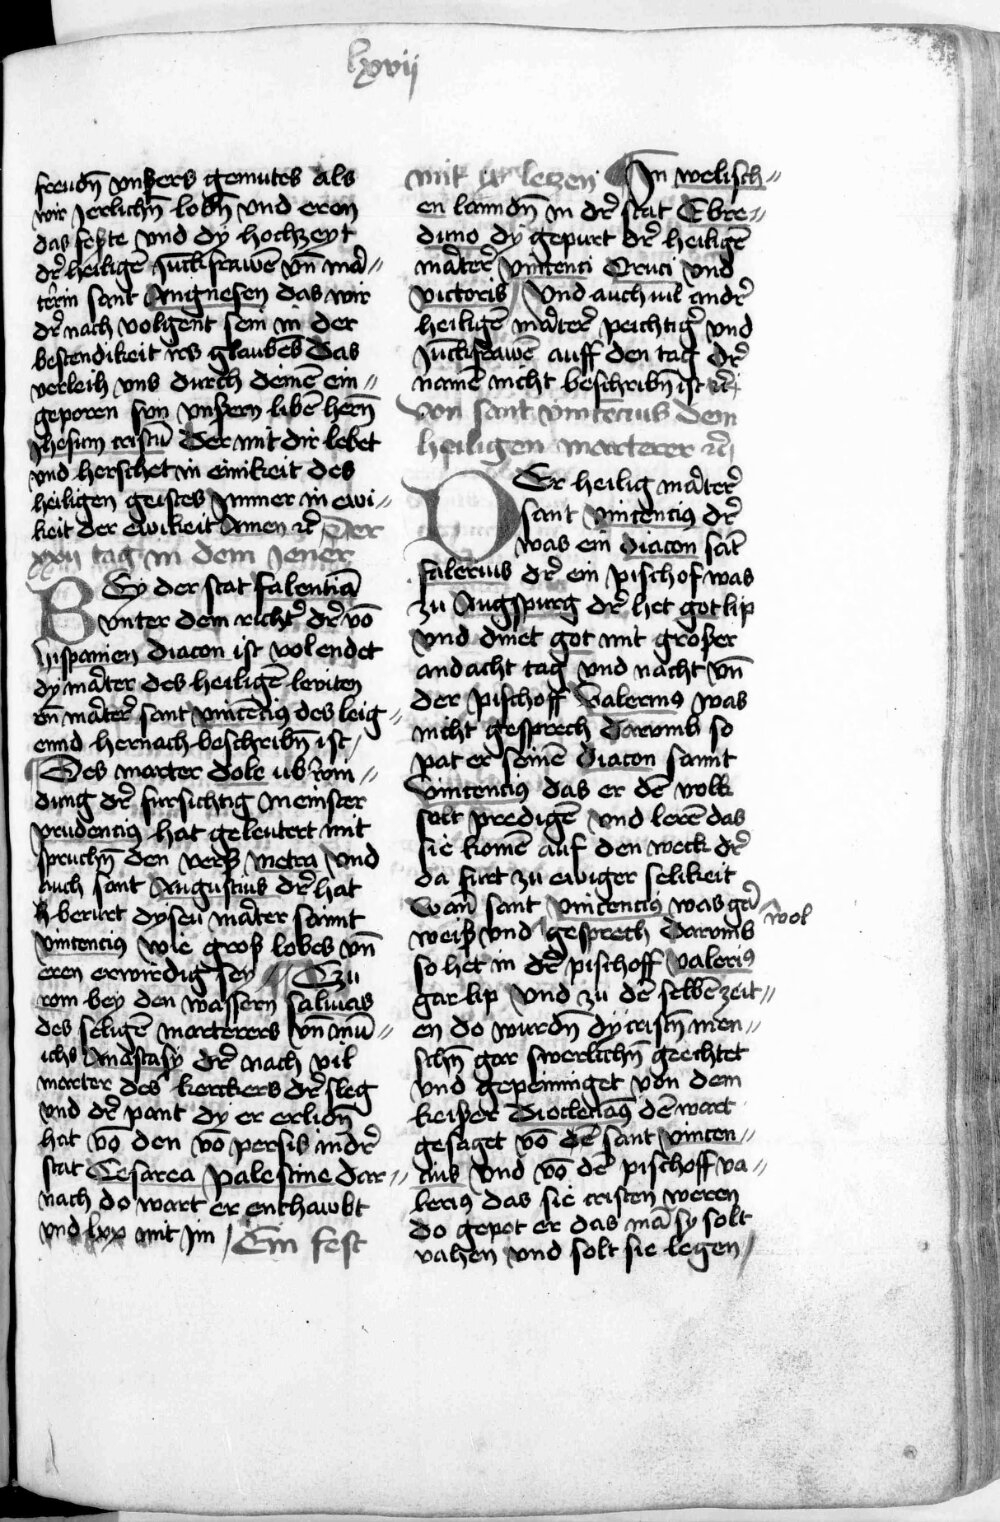 lxvij
freudn̄ vnßers gemutes als
wir Jerlichn̄ lobn̄ vnd eren
das feste vnd dÿ hochzeyt
dr̄ heiligē Jūckfrawē vn̄ mar̄//
terin sant Angnesen das wir
dr̄ nach volgent sein in der
bestendikeit irs glaubēs das
verleih vns durch deinē ein//
geporen sun vnßern libē hern̄
Jhesum cristū Der mit dir lebet
vnd herschet in einikeit des
heiligen geistes Jmmer in ewi//
keit der ewikeit Amen ꝛc̄ Der
xxii tag in dem Jener
BEy der stat falentiā
vnter dem richtr̄ dr̄ vō
hispanien diacon ist volendet
dÿ mart̄er des heiligē leviten
vn̄ mart̄er̄ sant vincēciꝯ des leig//
ennd hernach beschribn̄ ist /
Des marter dole
dung dr̄ fursichtig meinster
prudenciꝯ hat geleutert mit
spruchn̄ den verß metra vnd
auch sant Augustinus dr̄ hat
berurt dysen mart̄er sannt
vincenciꝯ wie groß lobes vn̄
eren erwirdig sey Czu
rom bey den wassern saluias
des seligē marterers vn̄ mū//
ichs Anastasÿ dr̄ nach vil
marter des kerckers dr̄ sleg
vnd dr̄ pant dÿ er erlidn̄
hat vō den vō persis in dr̄
stat Cesarea palestine dar//
nach do wart er enthawbt
vnd lxx mit jm / Ein fest
mit ix letzen Jn welisch//
en lanndn̄ in dr̄ stat Ebre//
duno dÿ gepurt dr̄ heiligē
mart̄er̄ vincenti Oruci vnd
victoris Vnd auch vil andr̄
heiligē mart̄er̄ peichtigr̄ vnd
Jūckfrawē auff den tag dr̄
namē nicht beschribn̄ ist ꝛc̄
Von sant vincencius dem
heiligen marterer ꝛc̄
DEr heilig mart̄er̄
sant vincenciꝯ dr̄
was ein diacon sāt
falerius dr̄ ein pischof was
zu Augspurg dr̄ het got lip
vnd dinet got mit großer
andacht tag vnd nacht vn̄
der pischoff Valeriꝯ was
nicht gesprech Darvmb so
pat er seinē diacon sannt
Vincenciꝯ das er dē volk
solt predigē vnd lerē das
sie komē auf den weck dr̄
da furt zu ewiger selikeit
Wan̄ sant vincenciꝯ was gar̄
weiß vnd wol gesprech Darvmb
so het in dr̄ pischoff valeriꝯ
gar lip vnd zu dē selbē zeit//
en do wurdn̄ dÿ cristn̄ men//
schn̄ gar swerlichn̄ geechtet
vnd gepeiniget von dem
keißer Dioclecianꝯ dē wart
gesaget vō dē sant vincen//
cius vnd vō dē pischoff va//
leriꝯ das sie cristen weren
do gepot er das mā sÿ solt
vahen vnd solt sie legen /